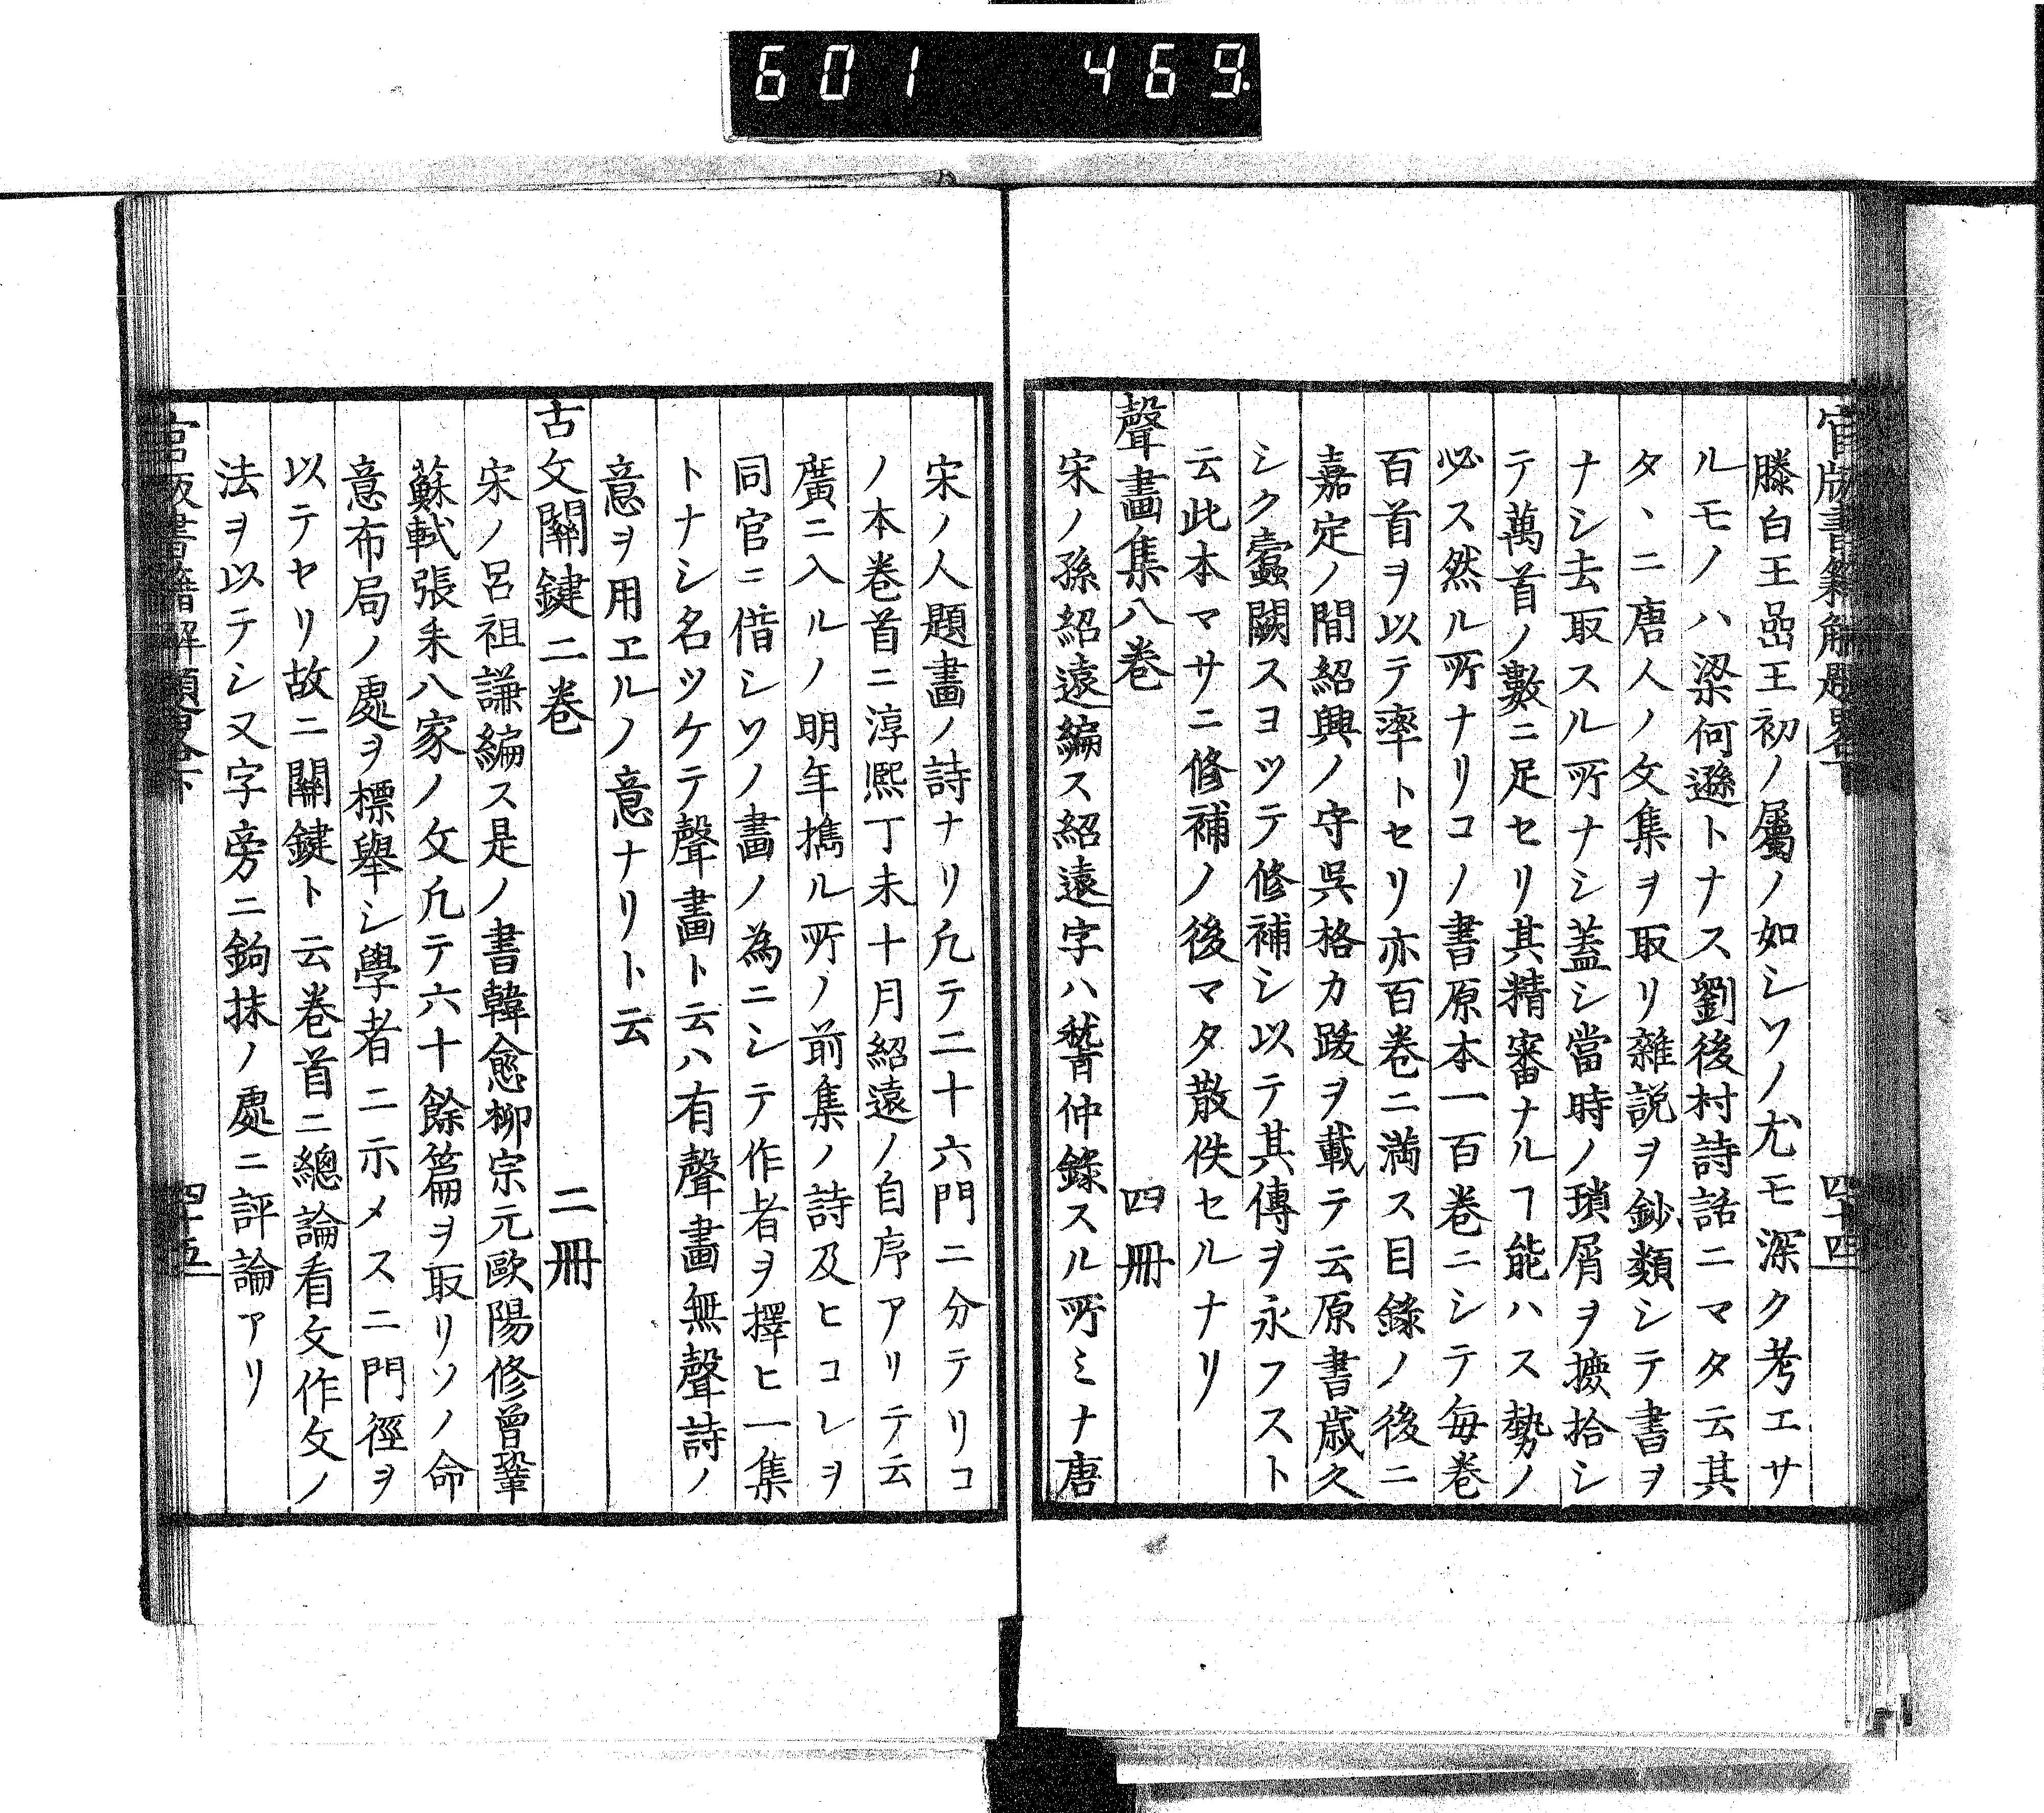 601 469
官版書籍解題畧下
四十四
滕白王嵒王初ノ屬ノ如シソノ尤モ深ク考エサ
ルモノハ梁何遜トナス劉後村詩話ニマタ云其
タヽニ唐人ノ文集ヲ取リ雜説ヲ鈔類シテ書ヲ
ナシ去取スル所ナシ蓋シ當時ノ瑣屑ヲ摭拾シ
テ萬首ノ數ニ足セリ其精審ナルヿ能ハス勢ノ
必ス然ル所ナリコノ書原本一百巻ニシテ毎巻
百首ヲ以テ率トセリ亦百巻ニ満ス目錄ノ後ニ
嘉定ノ間紹興ノ守呉格カ跋ヲ載テ云原書歳久
シク蠹闕スヨツテ修補シ以テ其傳ヲ永フスト
云此本マサニ修補ノ後マタ散佚セルナリ
聲畫集八巻 四冊
宋ノ孫紹遠編ス紹遠字ハ稽仲錄スル所ミナ唐
宋ノ人題畫ノ詩ナリ凡テ二十六門ニ分テリコ
ノ本巻首ニ淳熙丁未十月紹遠ノ自序アリテ云
廣ニ入ルノ明年擕ル所ノ前集ノ詩及ヒコレヲ
同官ニ借シソノ畫ノ為ニシテ作者ヲ擇ヒ一集
トナシ名ツケテ聲畫ト云ハ有聲畫無聲詩ノ
意ヲ用エルノ意ナリト云
古文關鍵二巻 二冊
宋ノ呂祖謙編ス是ノ書韓愈柳宗元歐陽修曾鞏
蘇軾張耒八家ノ文凡テ六十餘篇ヲ取リソノ命
意布局ノ處ヲ標舉シ學者ニ示メスニ門徑ヲ
以テセリ故ニ關鍵ト云巻首ニ總論看文作文ノ
法ヲ以テシ又字旁ニ鉤抹ノ處ニ評論アリ
官版書籍解題畧下
四十五